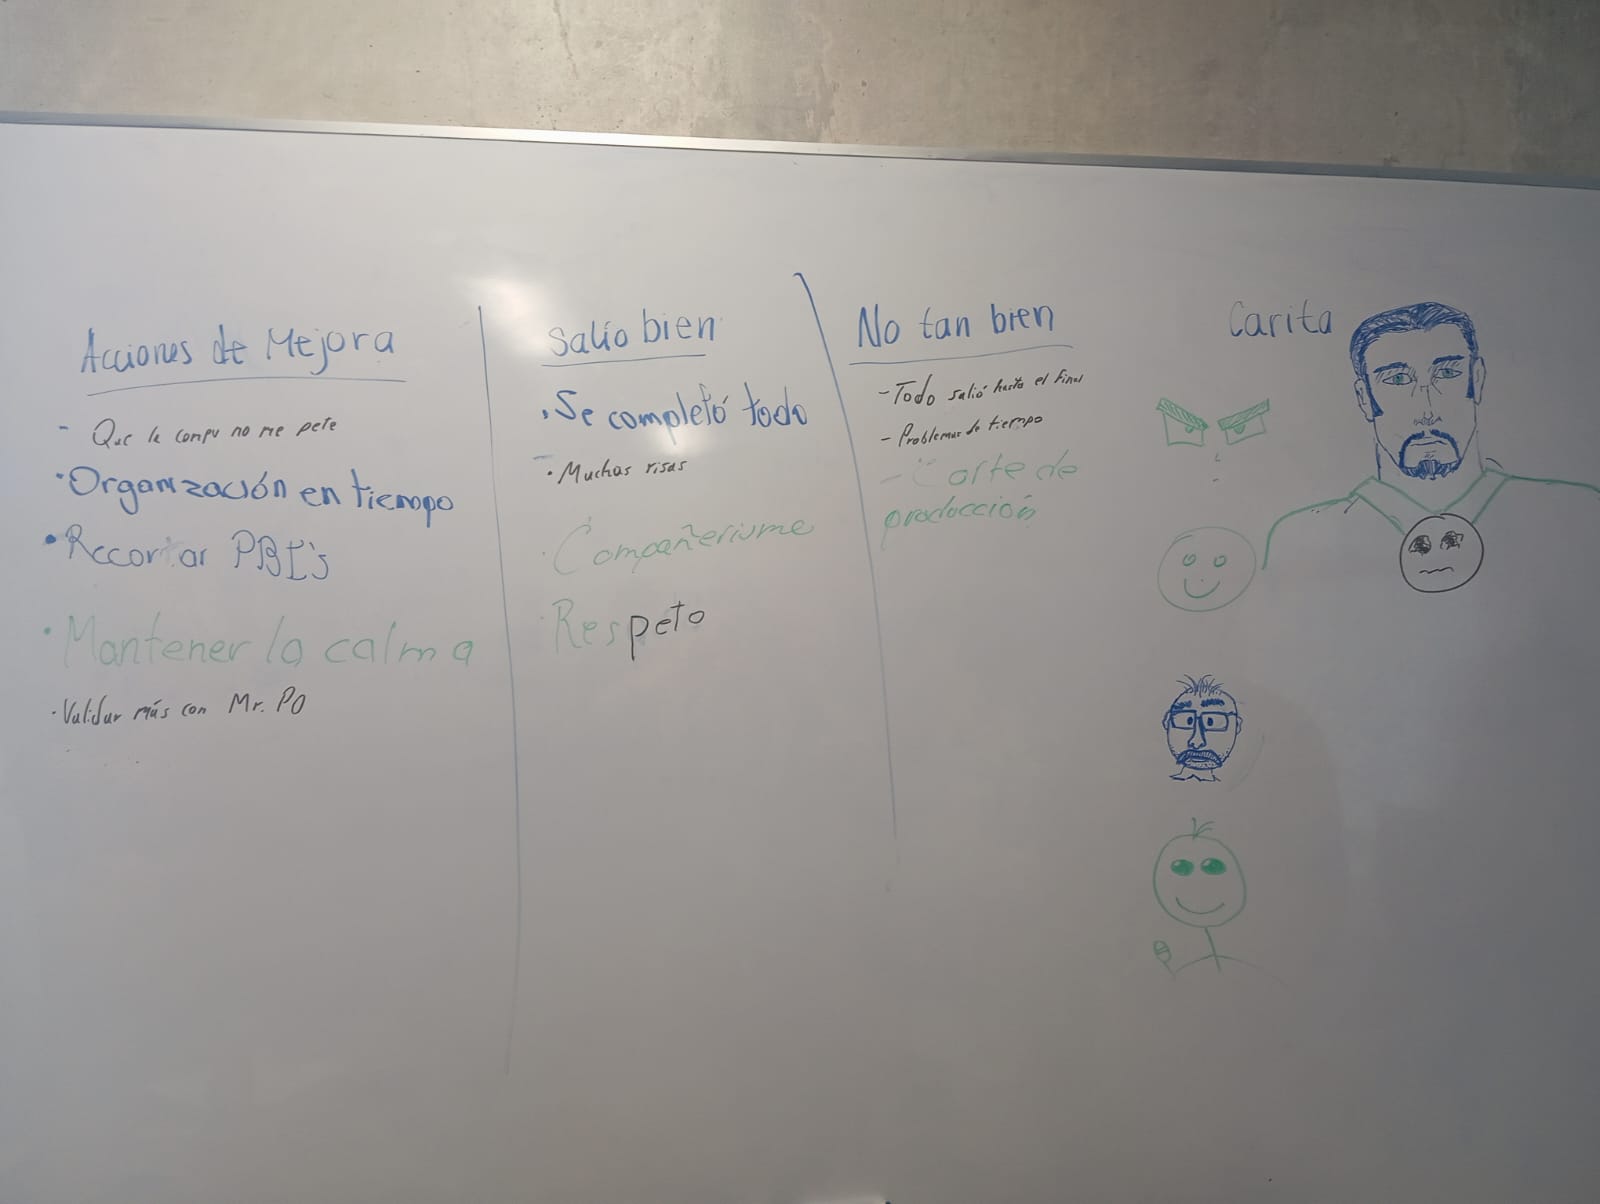 Acciones de Mejora
- Que la compu no me pete
· Organización en tiempo
· Recortar PBI's
· Mantener la calma
· Validar más con Mr. PO
Salío bien
· Se completó todo
· Muchas risas
· Compañerisme
· Respeto
No tan bien
- Todo salió hasta el final
- Problemas de tiempo
- Corte de
producción
Carita